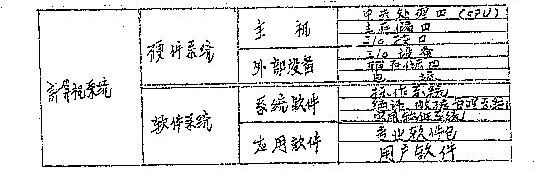 计算机系统
硬件系统
主 机
中央处理器 (CPU)
主存储器
I/O 接口
外部设备
I/O 设备
辅存储器
电 源
软件系统
系统软件
操作系统
编译、数据管理系统
应用软件
专业软件包
用户软件